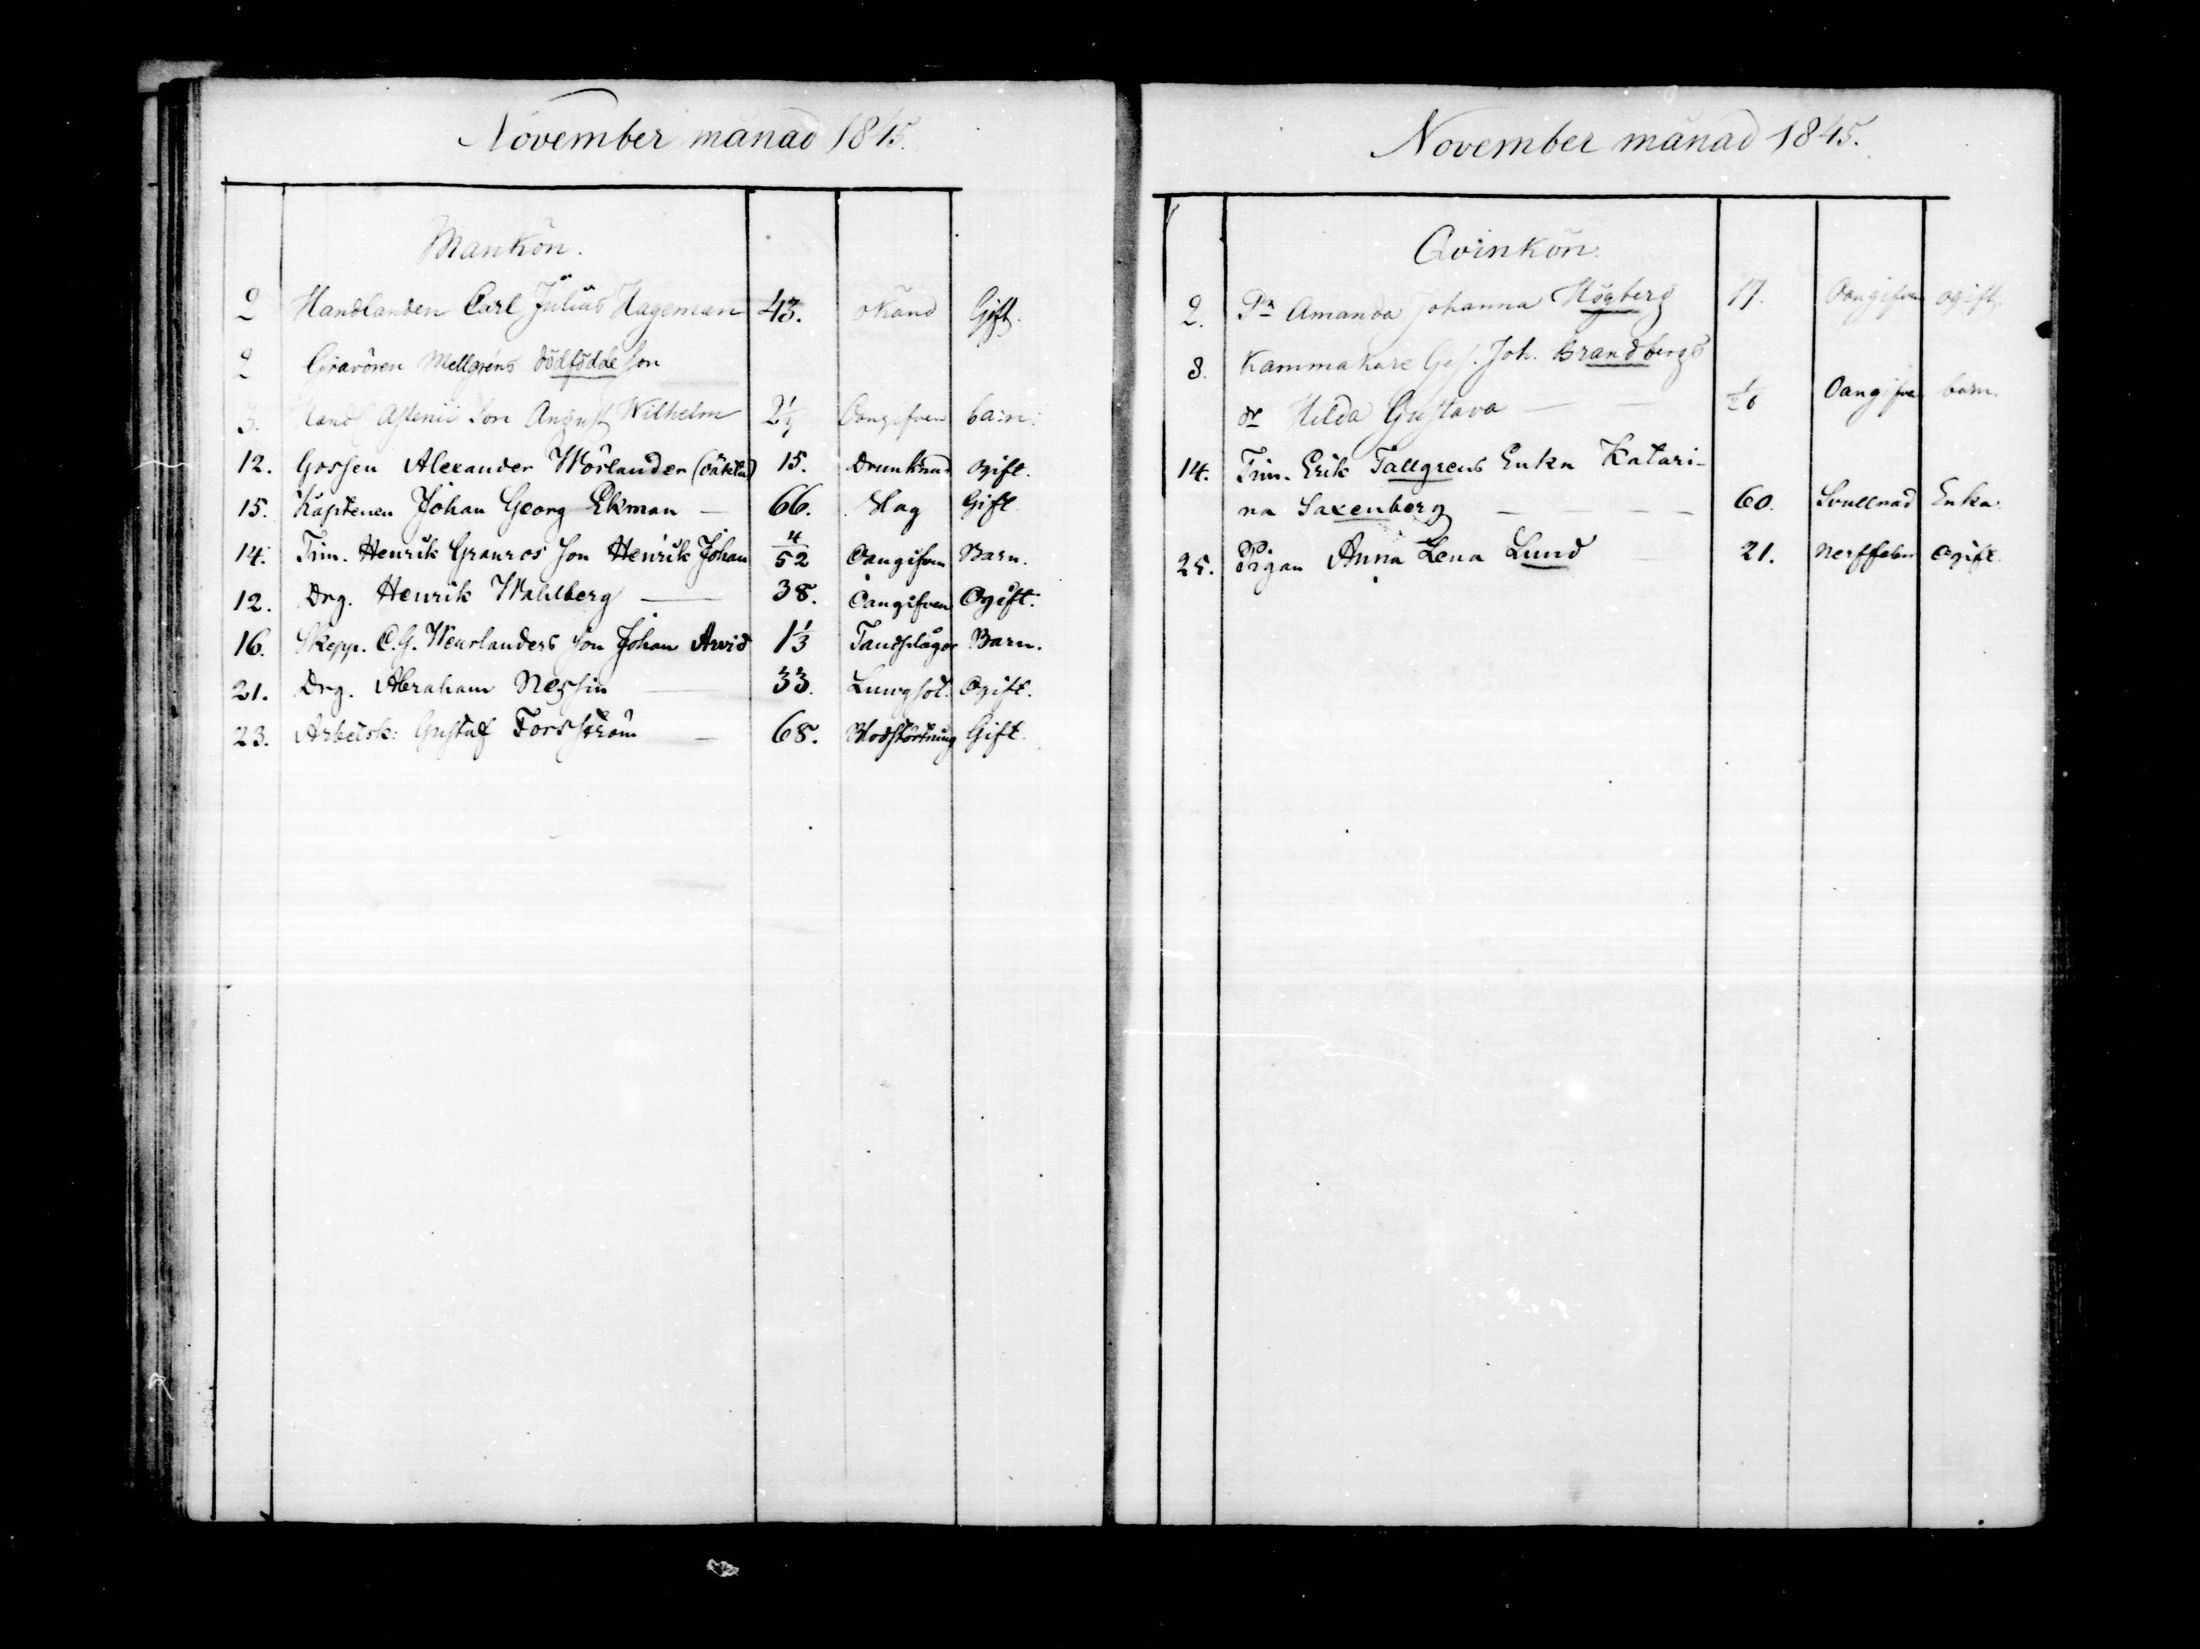 November månad 1845.
Mankön.
2 Handlanden Carl Julius Hageman 43. okänd Gift.
2 Gravören Mellgrens dödfödde Son
3. Handl Astenii Son August Wilhelm 2½ Oangifven barn.
12. Gossen Alexander Wörlander (oäkta) 15. Drunknad ogift.
15. Kaptenen Johan Georg Ekman — 66. Slag Gift
14. Tim. Henrik Granroos Son Henrik Johan 4/52 Oangifven Barn.
12. Drg. Henrik Wahlberg — 38. Oangifven Ogift.
16. Skepp. C.G. Weurlanders Son Johan Arvid 1⅓ Tandplågor Barn.
21. Drg. Abraham Nessin — 33. Lungsot. Ogift.
23. Arbetsk: Gustaf Forsström — 68. Blodstörtning Gift.
November månad 1845.
Qvinkön.
2. Pn Amanda Johanna Högberg 17. Oangifven ogift.
8. Kammakare Ges. Joh. Brandbergs
dr Hilda Gustava — — Oangifven barn.
14. Tim. Erik Tallgrens Enka Katari-
na Saxenberg — — — — 60. Svullnad Enka.
25. Pigan Anna Lena Lund 21. Nerffeber Ogift.